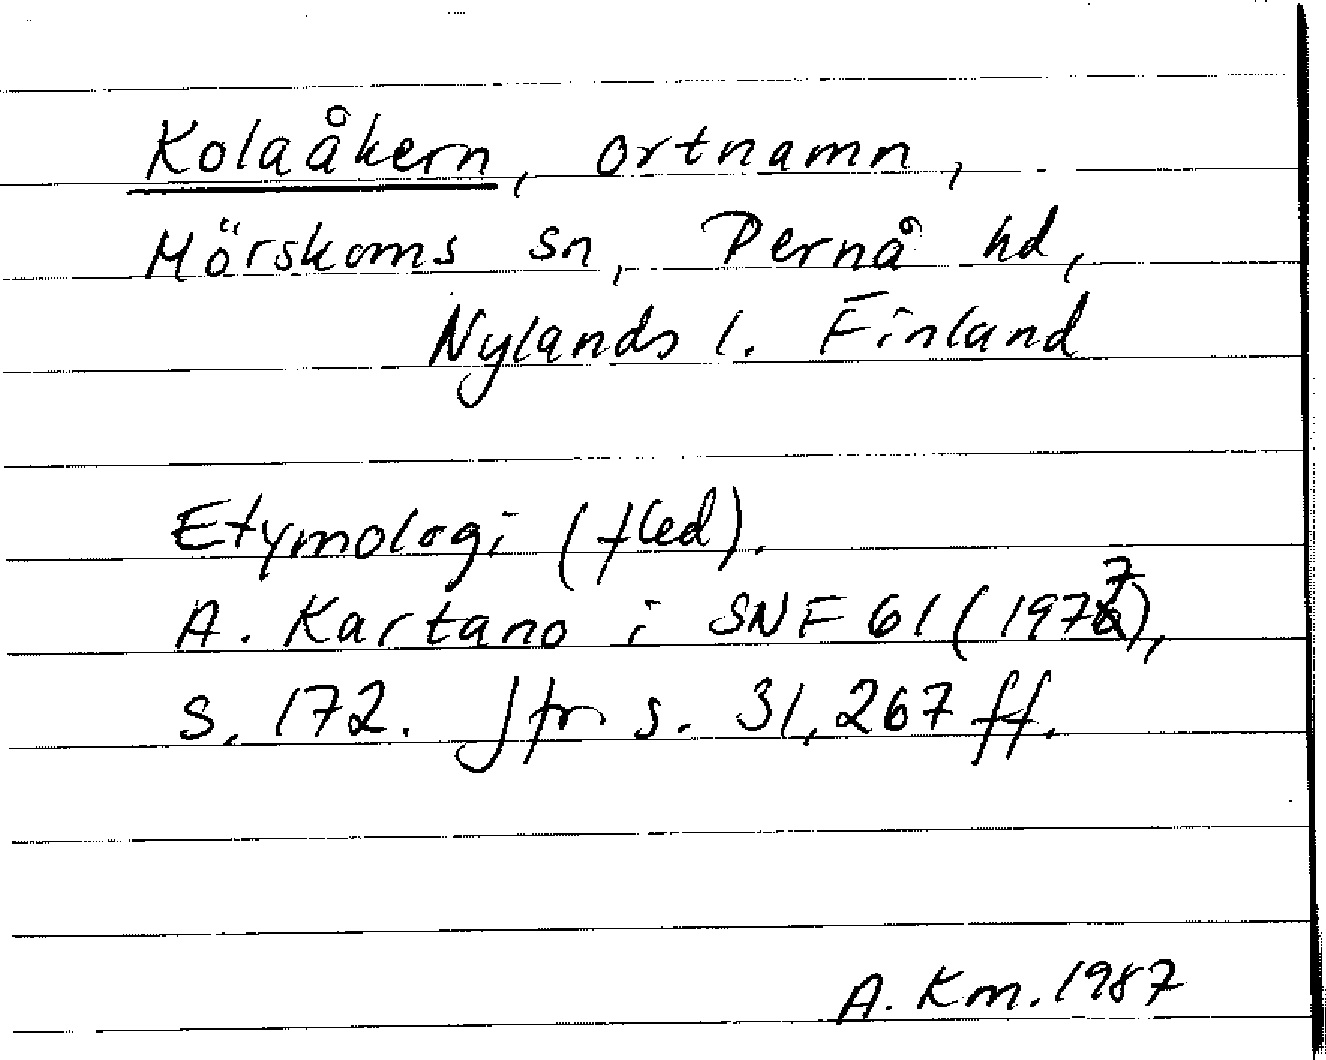 Kolaåkern, ortnamn,
Mörskoms sn, Pernå hd,
Nylands l. Finland
Etymologi (fled).
A. Kartano i SNF 61 (1977),
s. 172. Jfr s. 31, 267 ff.
A. Km. 1987